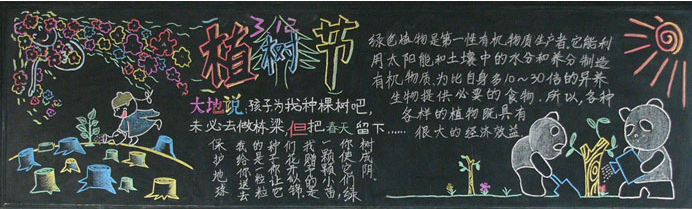 植树节
大地说:孩子,为我种棵树吧,
未必去做栋梁,但把春天留下……
保护地球
我给你送去
的是一粒粒
种子你让它
们花开似锦
我赠的是
一颗颗小苗
你使它们绿
树成阴
绿色植物是第一性有机物质生产者,它能利
用太阳能和土壤中的水分和养分制造
有机物质,为比自身多10~30倍的异养
生物提供必要的食物。所以,各种
各样的植物既具有
很大的经济效益.